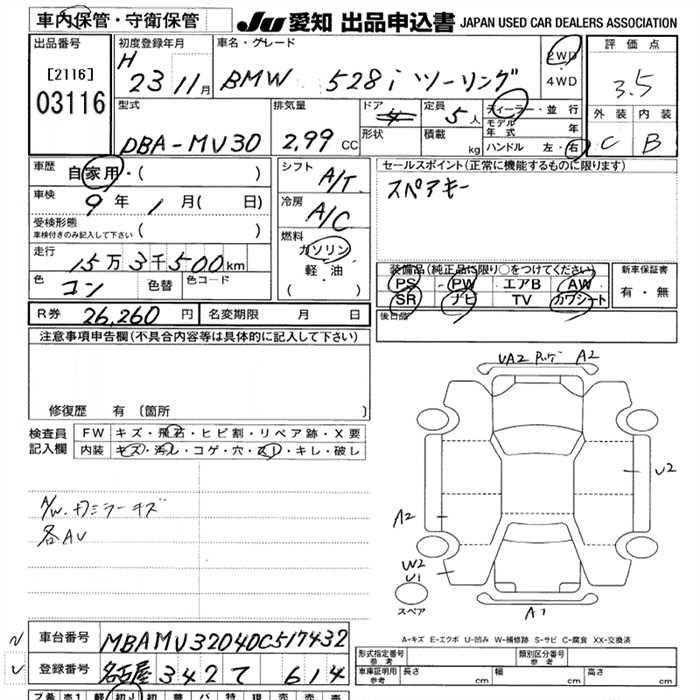 車内保管・守衛保管
JU 愛知 出品申込書 JAPAN USED CAR DEALERS ASSOCIATION
出品番号
[2116]
03116
初度登録年月
H 23 11月
車名・グレード
BMW 528i ツーリング
2WD
4WD
評価点
3.5
外装 内装
C B
型式
DBA-MV30
排気量
2.99 CC
ドア
4
形状
定員
5人
積載
kg
ディーラー・並行
モデル年式 年
ハンドル 左・右
車歴
自家用・( )
車検
9年 1月( 日)
受検形態
車検付きのみ記入して下さい ( )
走行
15万3千500km
色
コン
色替
色コード
シフト
A/T
冷房
A/C
燃料
ガソリン
軽・油
( ・ )
セールスポイント(正常に機能するものに限ります)
スペアキー
装備品(純正品に限り○をつけてください)
PS PW エアB AW
SR ナビ TV カワシート
新車保証書
有・無
後日品
R券 26,260円
名変期限 月 日
注意事項申告欄(不具合内容等は具体的に記入して下さい)
修復歴 有 〔箇所 〕
検査員記入欄
FW キズ・飛石・ヒビ割・リペア跡・X要
内装 キズ・汚レ・コゲ・穴・スレ・キレ・破レ
A/W、ドミラーキズ
各AU
UA2 A2
U2
A2
W2
U1
スペア
A1
A-キズ E-エクボ U-凹み W-補修跡 S-サビ C-腐食 XX-交換済
車台番号 MBAMU32040DC517432
登録番号 名古屋 342 て 614
形式指定番号 参考
類別区分番号 参考
車庫証明用 参考
長さ cm
幅 cm
高さ cm